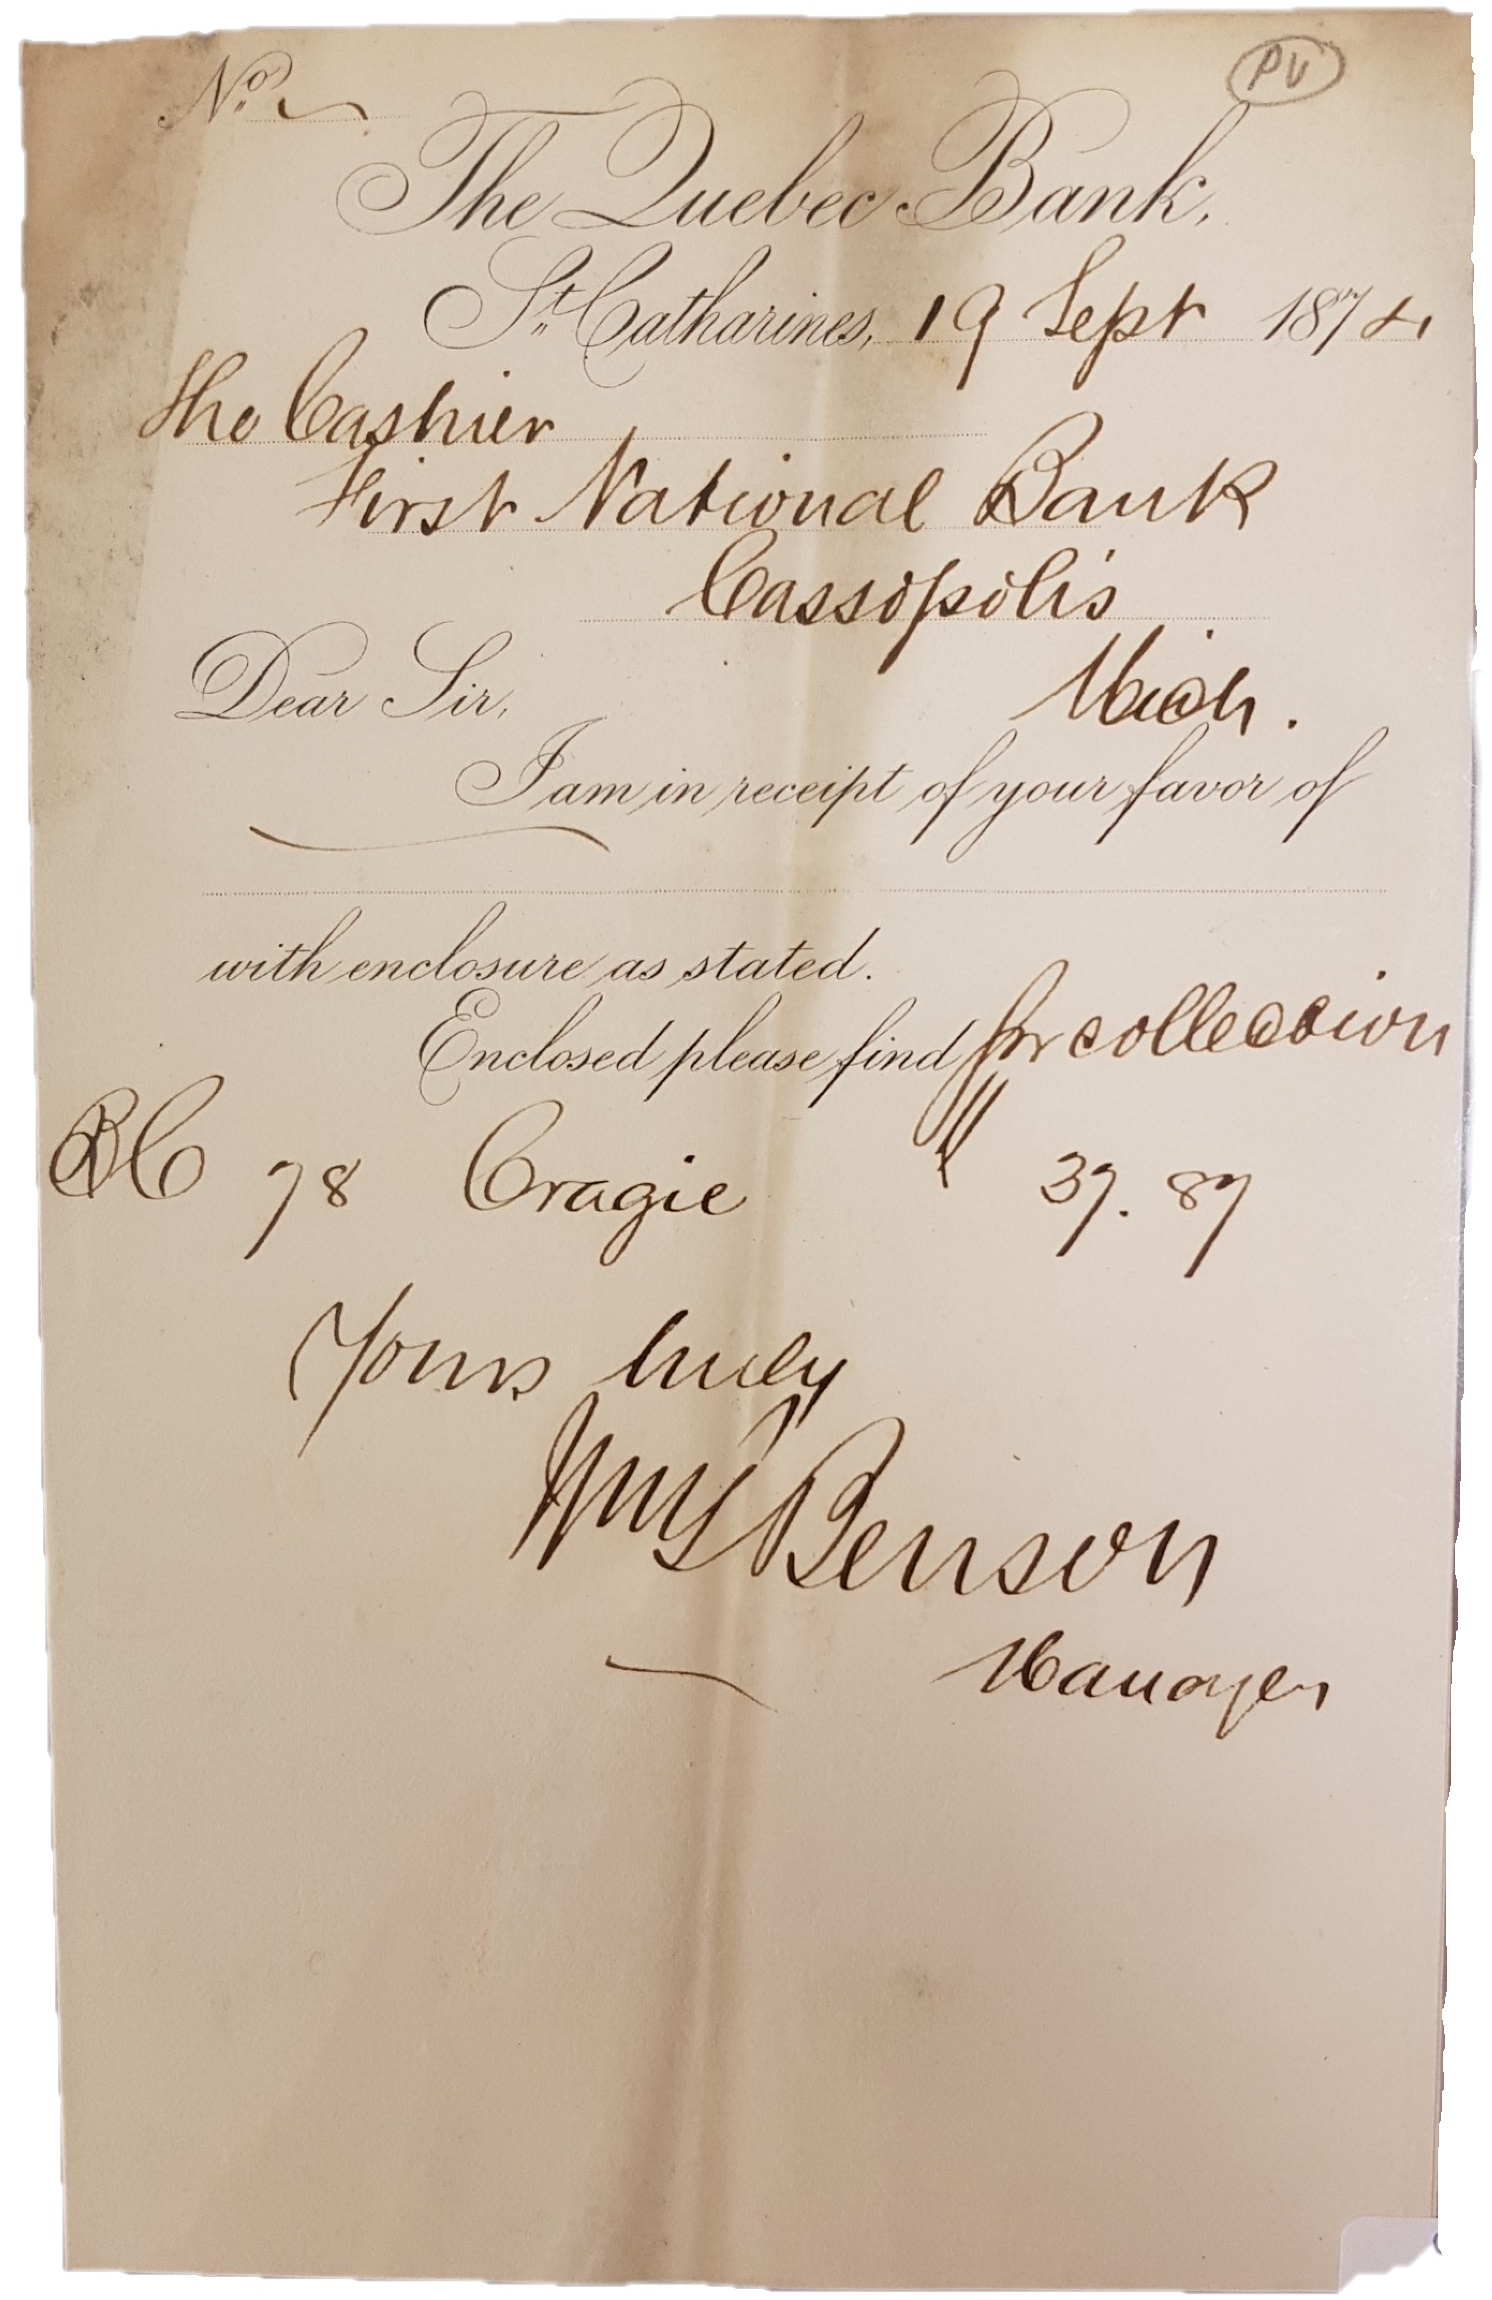 PV
No.
The Quebec Bank,
St. Catharines, 19 Sept 1874
The Cashier
First National Bank
Cassopolis
Mich.
Dear Sir,
I am in receipt of your favor of
with enclosure as stated.
Enclosed please find for collection
BC 78 Cragie " 37.87
Yours truly
Benson
Manager